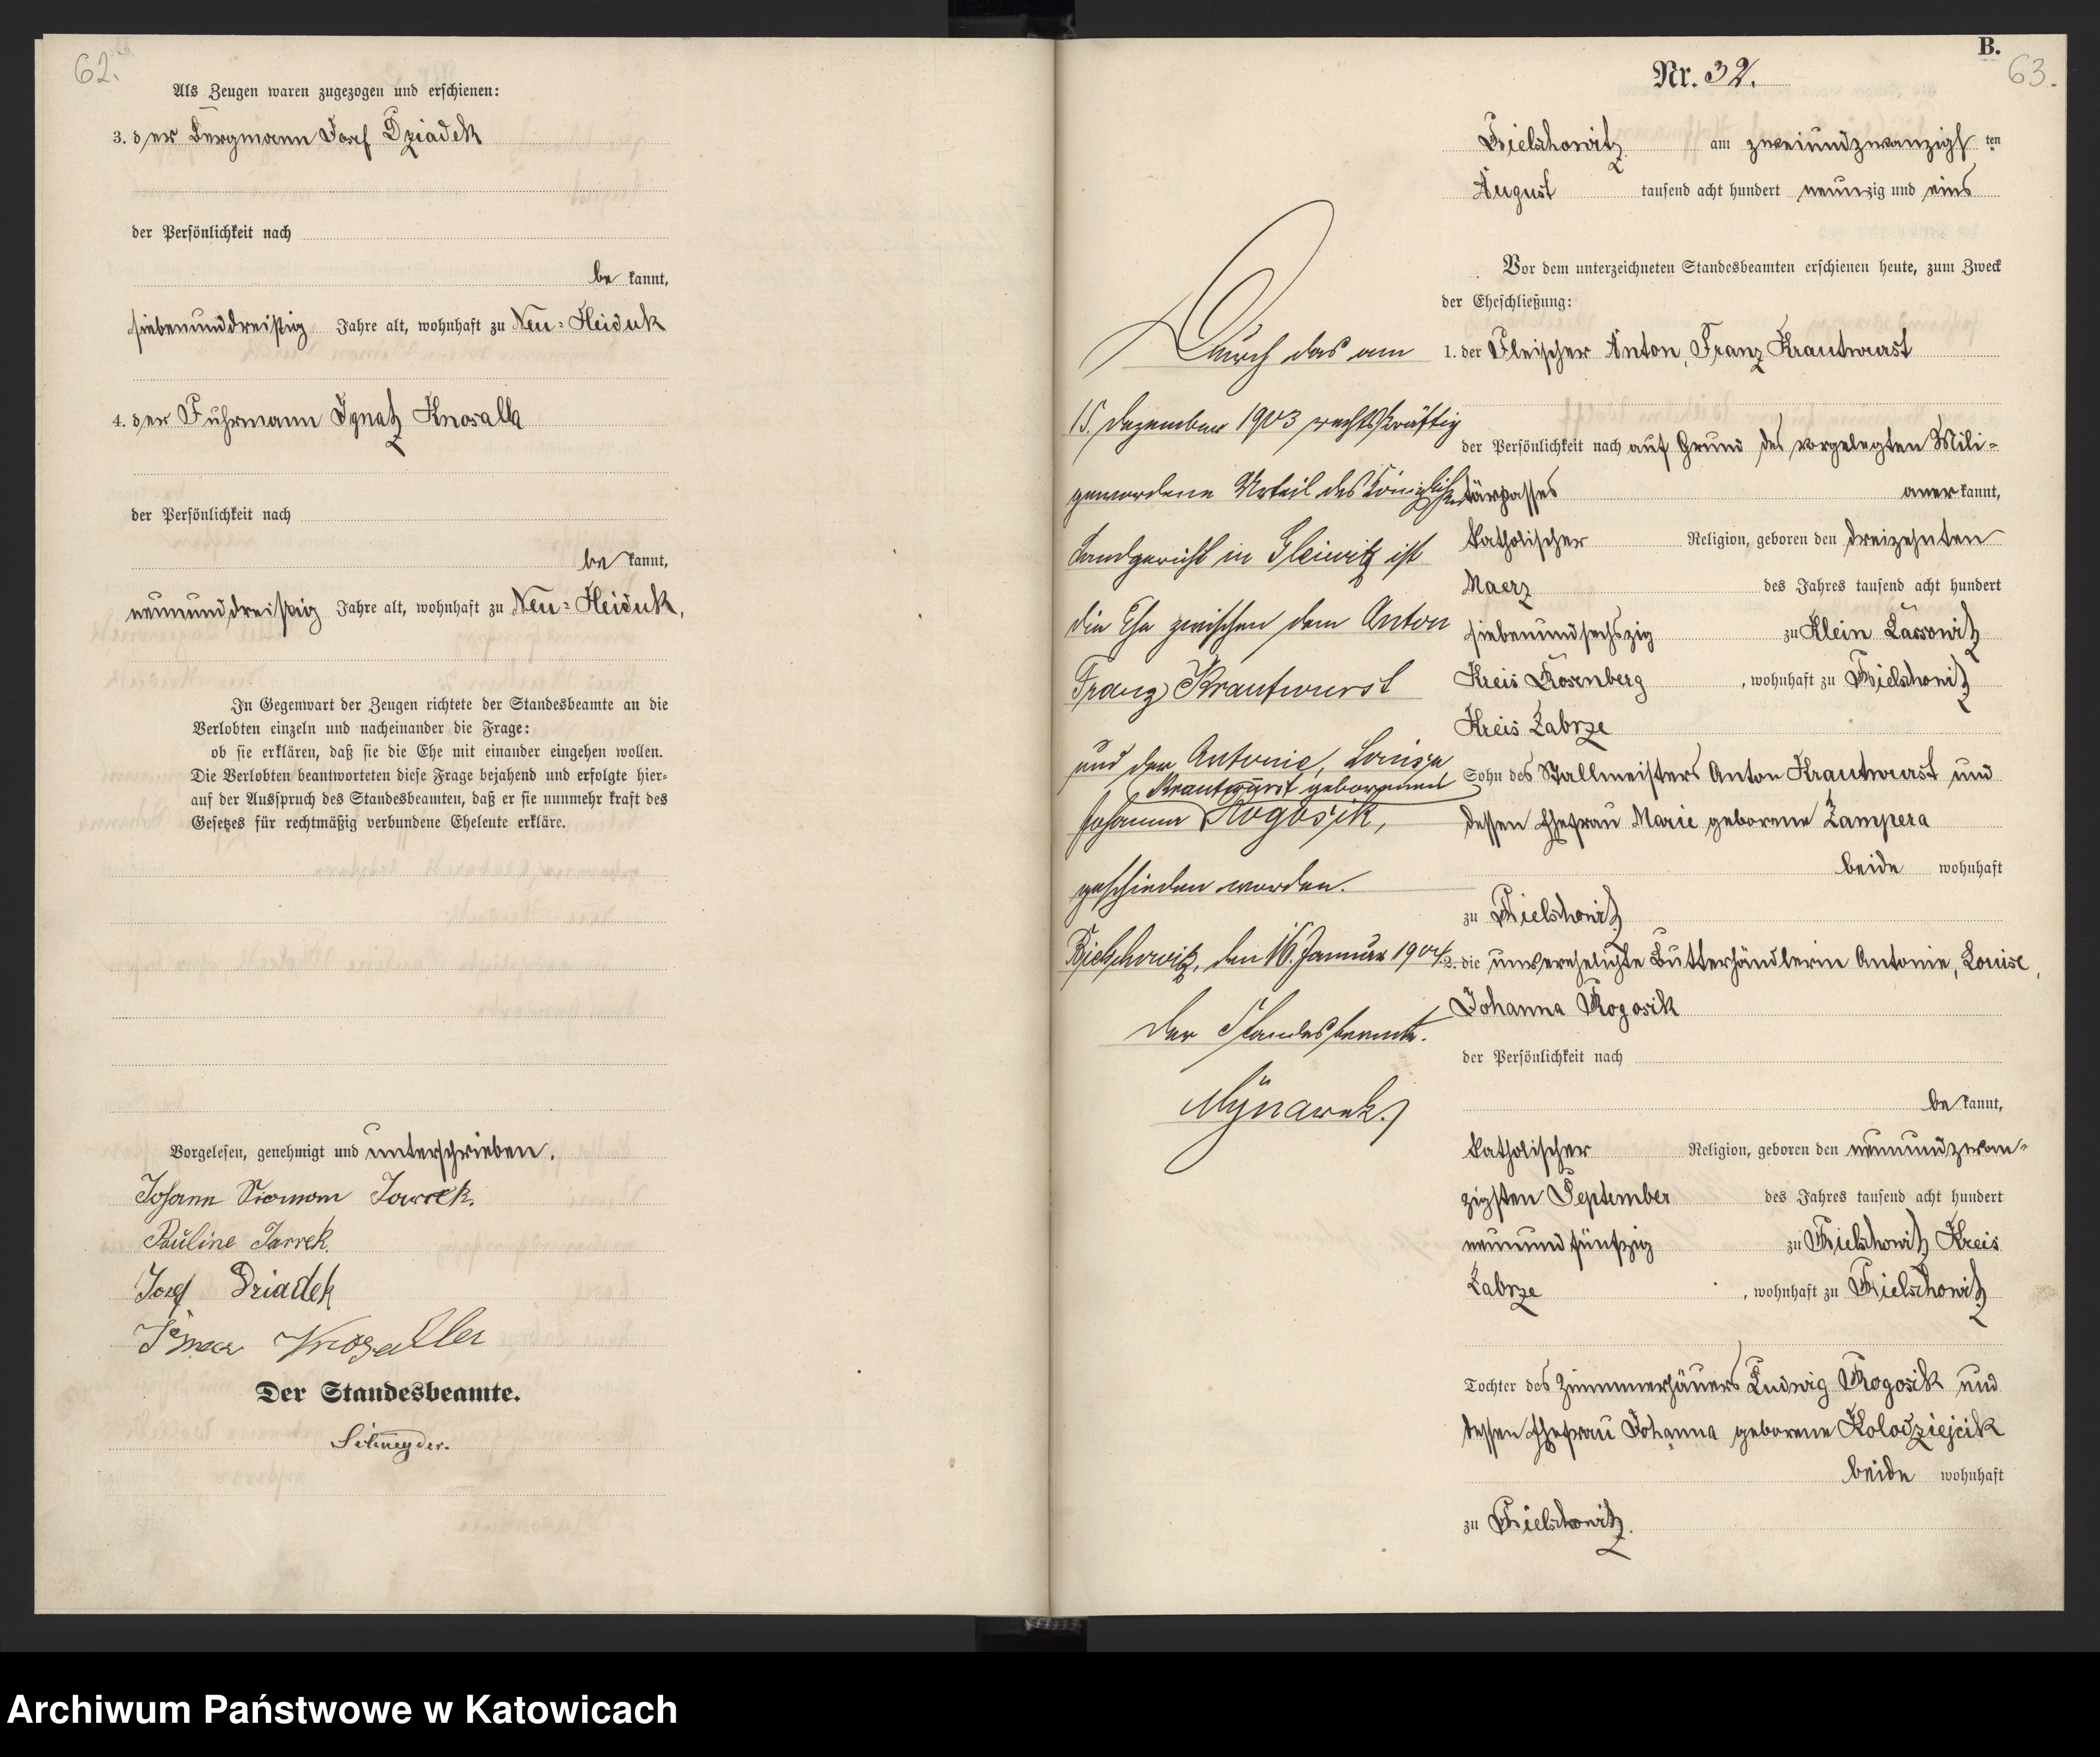 62.
Als Zeugen waren zugezogen und erschienen:
3. der Bergmann Josef Dziadek
der Persönlichkeit nach
be kannt,
siebenunddreißig Jahre alt, wohnhaft zu Neu-Heiduk
4. der Fuhrmann Ignatz Knosalla
der Persönlichkeit nach
be kannt,
neununddreißig Jahre alt, wohnhaft zu Neu-Heiduk,
In Gegenwart der Zeugen richtete der Standesbeamte an die
Verlobten einzeln und nacheinander die Frage:
ob sie erklären, daß sie die Ehe mit einander eingehen wollen.
Die Verlobten beantworteten diese Frage bejahend und erfolgte hier-
auf der Ausspruch des Standesbeamten, daß er sie nunmehr kraft des
Gesetzes für rechtmäßig verbundene Eheleute erkläre.
Vorgelesen, genehmigt und unterschrieben.
Johann Jarrek.
Pauline Jarrek.
Josef Dziadek
Der Standesbeamte.
Schneyder.
B.
63.
Nr. 32.
Bielschowitz am zweiundzwanzigsten
August tausend acht hundert neunzig und eins
Vor dem unterzeichneten Standesbeamten erschienen heute, zum Zweck
der Eheschließung:
1. der Fleischer Anton, Franz Krautwurst
der Persönlichkeit nach auf Grund des vorgelegten Mili-
tärpasses anerkannt,
katholischer Religion, geboren den dreizehnten
Maerz des Jahres tausend acht hundert
siebenundsechszig zu Klein Lassowitz
Kreis Rosenberg, wohnhaft zu Bielschowitz
Kreis Zabrze
Sohn des Stallmeisters Anton Krautwurst und
dessen Ehefrau Marie geborene Zampera
beide wohnhaft
zu Bielschowitz
2. die unverehelichte Butterhändlerin Antonie, Louise,
Johanna Rogosik
der Persönlichkeit nach
be kannt,
katholischer Religion, geboren den neunundzwan-
zigsten September des Jahres tausend acht hundert
neunundfünfzig zu Bielschowitz Kreis
Zabrze, wohnhaft zu Bielschowitz
Tochter des Zimmerhäuers Ludwig Rogosik und
dessen Ehefrau Johanna geborene Kolodziejcik
beide wohnhaft
zu Bielschowitz.
Durch das am
15. Dezember 1903 rechtskräftig
gewordene Urteil des Königlichen
Landgericht in Gleiwitz ist
die Ehe zwischen dem Anton
Franz Krautwurst
und der Antonie, Louise
Krautwurst geborenen
Johanna Rogosik,
geschieden worden.
Bielschowitz, den 16. Januar 1904.
Der Standesbeamte.
Mÿnarek.
Archiwum Państwowe w Katowicach